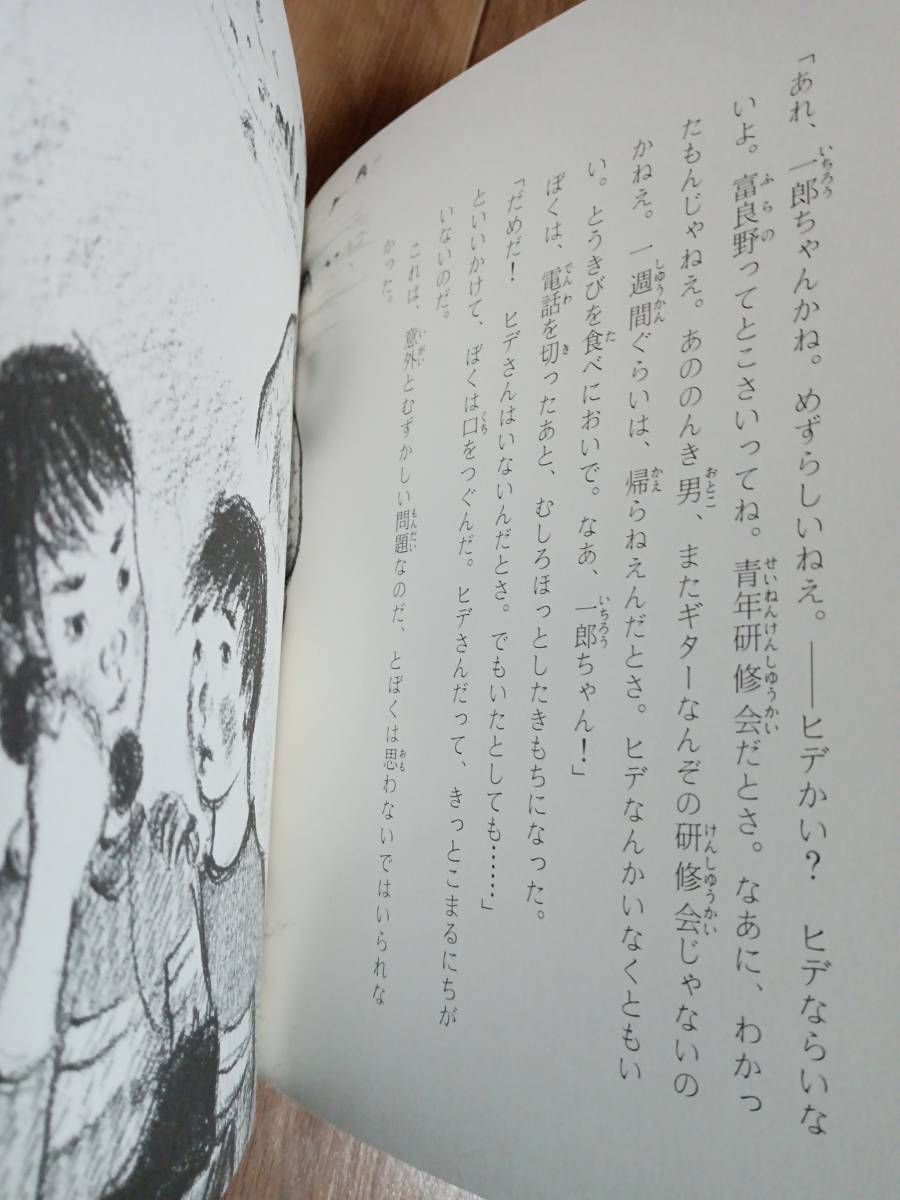 「あれ、一郎ちゃんかね。めずらしいねえ。――ヒデかい？　ヒデならいな
いよ。富良野ってとこさいってね。青年研修会だとさ。なあに、わかっ
たもんじゃねえ。あののんき男、またギターなんぞの研修会じゃないの
かねえ。一週間ぐらいは、帰らねえんだとさ。ヒデなんかいなくともい
い。とうきびを食べにおいで。なあ、一郎ちゃん！」
ぼくは、電話を切ったあと、むしろほっとしたきもちになった。
「だめだ！　ヒデさんはいないんだとさ。でもいたとしても……」
といいかけて、ぼくは口をつぐんだ。ヒデさんだって、きっとこまるにちが
いないのだ。
これは、意外とむずかしい問題なのだ、とぼくは思わないではいられな
かった。